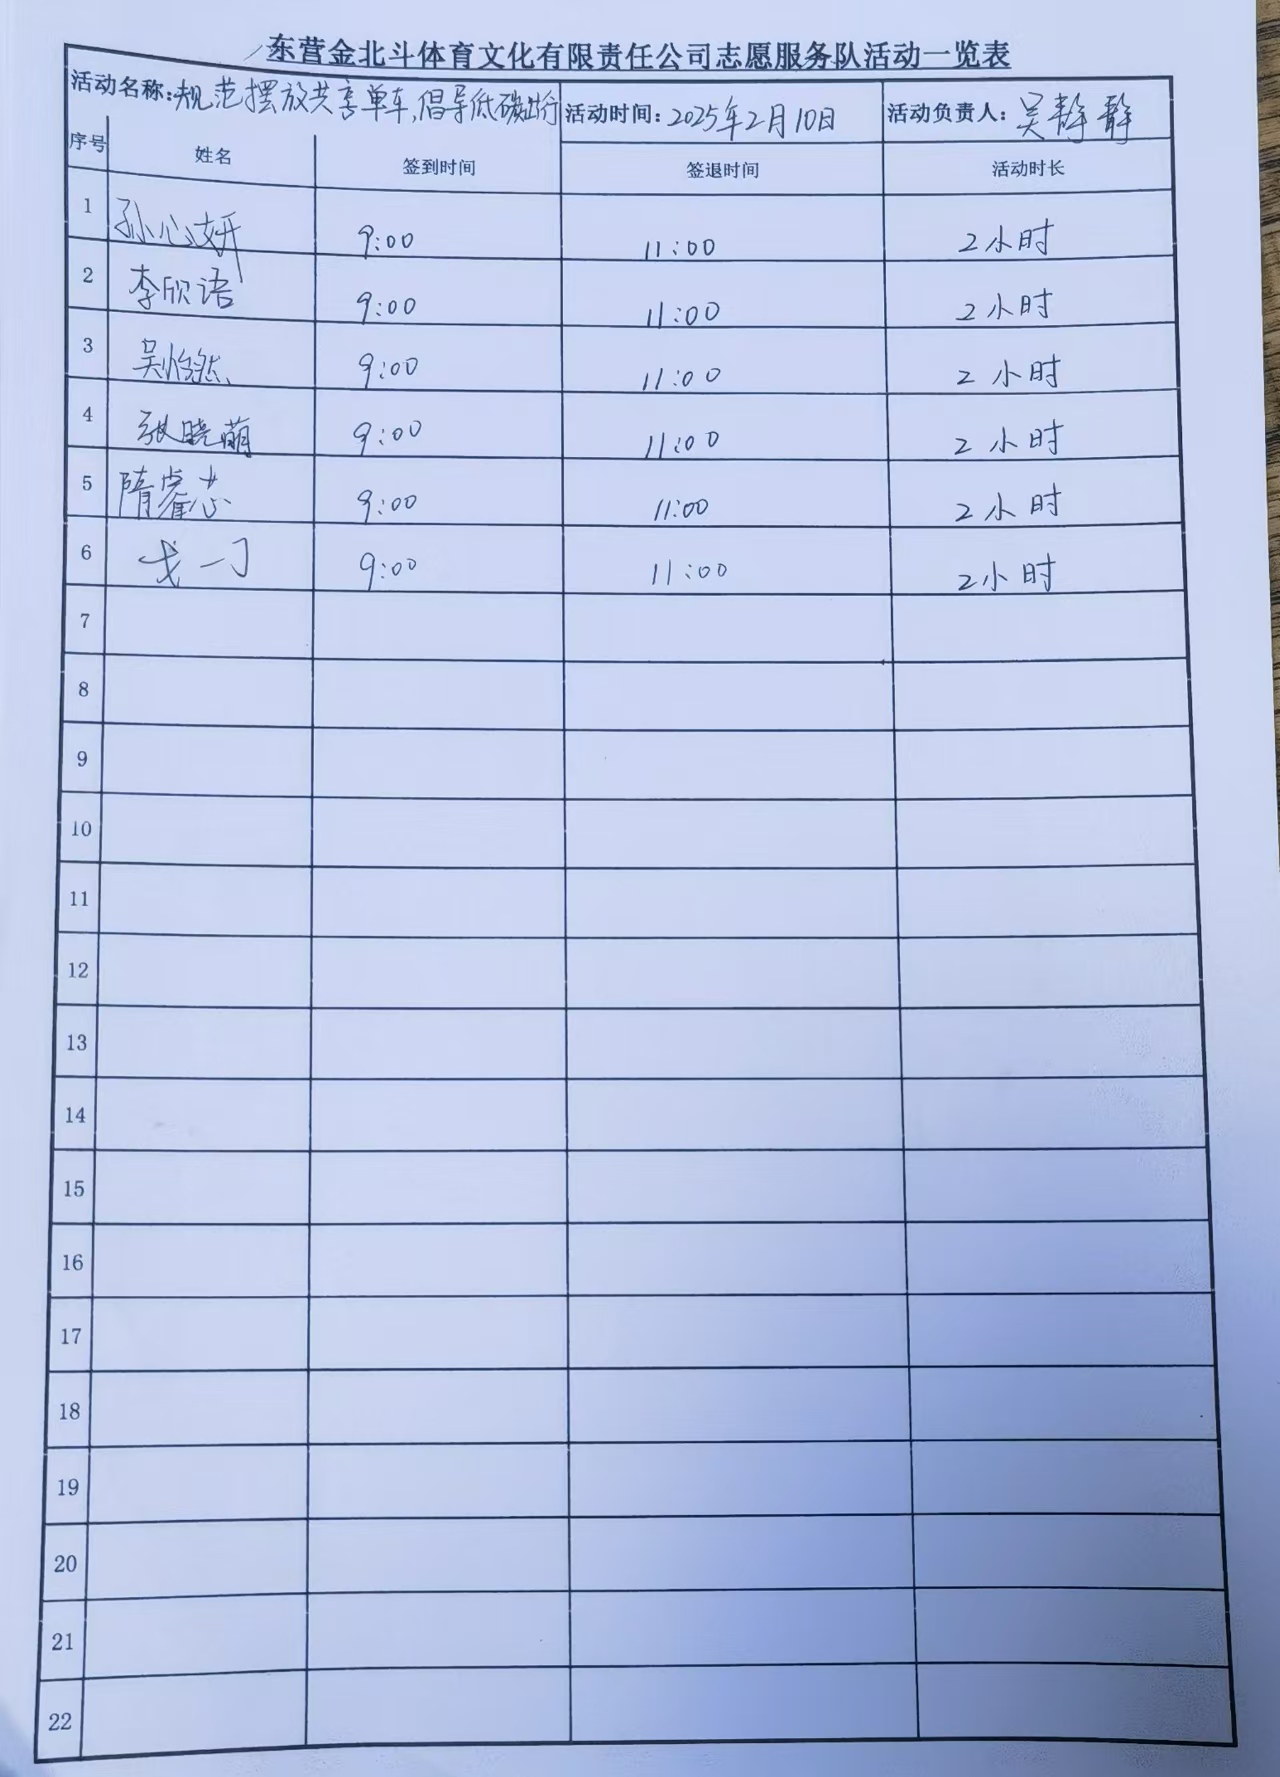 东营金北斗体育文化有限责任公司志愿服务队活动一览表
活动名称:规范摆放共享单车,倡导低碳出行 活动时间:2025年2月10日 活动负责人:吴静静
序号 姓名 签到时间 签退时间 活动时长
1 孙心妍 9:00 11:00 2小时
2 李欣语 9:00 11:00 2小时
3 吴怡然 9:00 11:00 2小时
4 张晓萌 9:00 11:00 2小时
5 隋 9:00 11:00 2小时
6 9:00 11:00 2小时
7
8
9
10
11
12
13
14
15
16
17
18
19
20
21
22